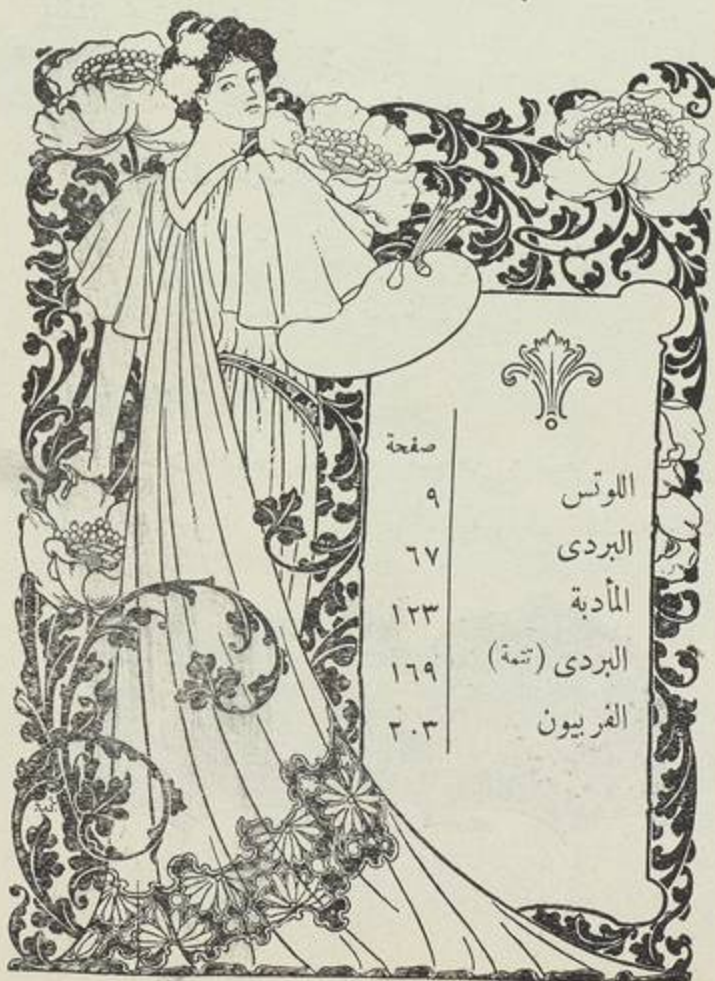 صفحة
اللوتس ٩
البردى ٦٧
المأدبة ١٢٣
البردى (تتمة) ١٦٩
الفربيون ٢٠٣